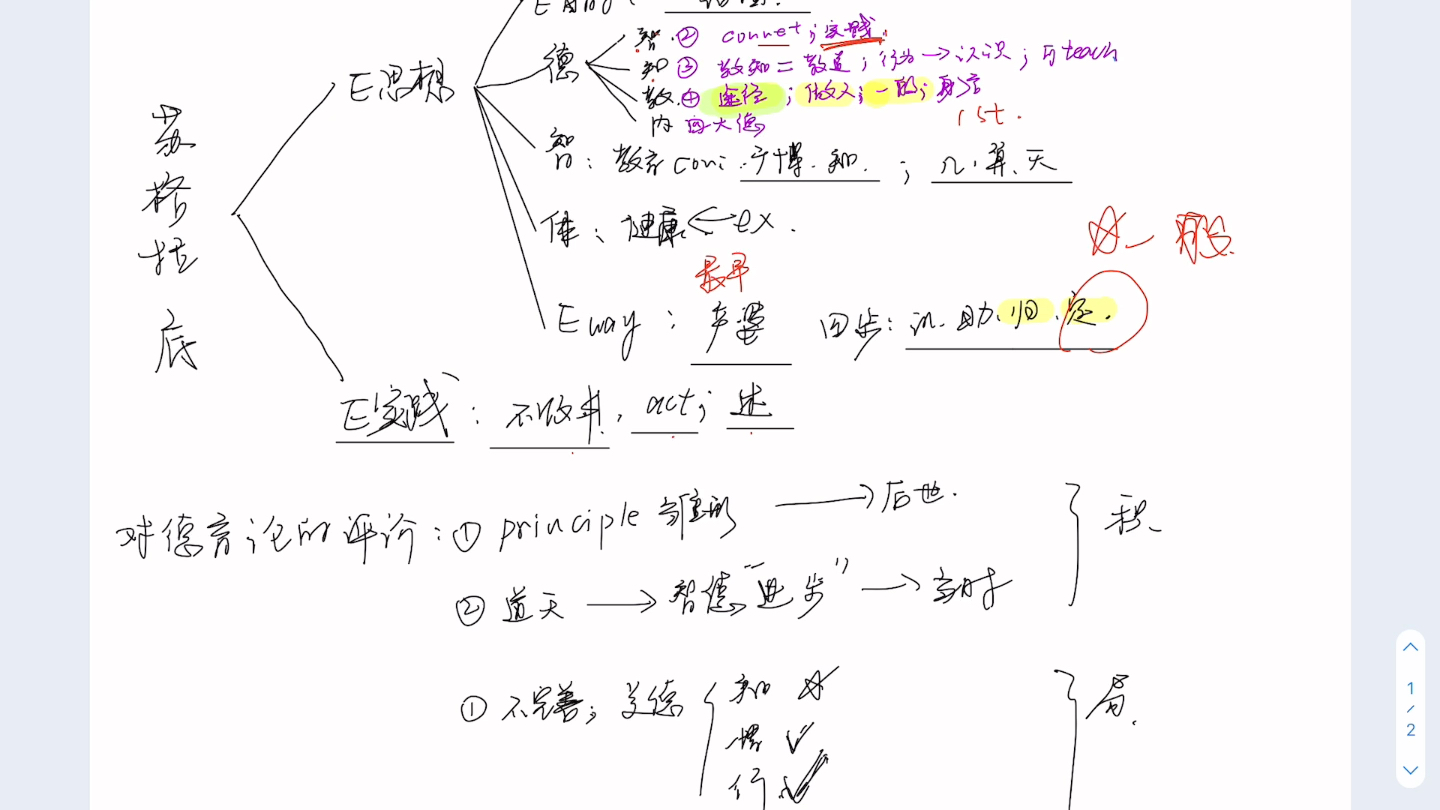 智 ② connet；实践.
E思想
德
知 ③ 教知 = 教道；行为→认识；可teach
教 ④ 途径；做人；一般；身言
内 四大德
1st.
智：教育 coni 广博.知. ；几.算.天
苏格拉底
体：健康 ←→ ex.
☆一般
最早
Eway：产婆 四步：讥.助.归.定.
E实践：不收费，act；述
对德育论的评价：① principle 雏形 → 后世.
积
② 道天 → 智德“进步” → 当时
① 不完善；美德
知 ☆
局.
情 ✓
行 ✓
1
/
2